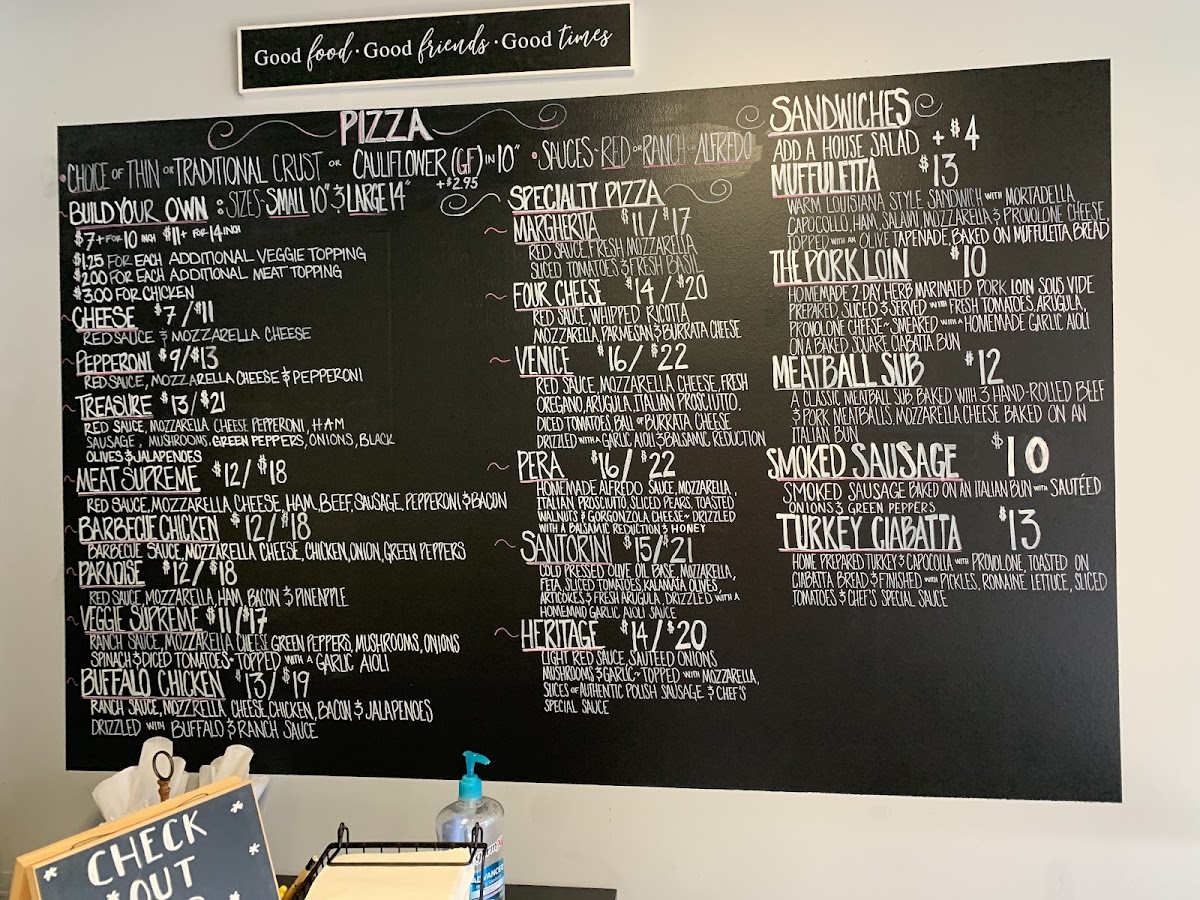 Good food · Good friends · Good times
PIZZA
• CHOICE OF THIN OR TRADITIONAL CRUST OR CAULIFLOWER (GF) IN 10" • SAUCES~ RED OR RANCH OR ALFREDO
+$2.95
~ BUILD YOUR OWN : SIZES~ SMALL 10" & LARGE 14"
$7+ FOR 10 INCH $11+ FOR 14 INCH
$1.25 FOR EACH ADDITIONAL VEGGIE TOPPING
$2.00 FOR EACH ADDITIONAL MEAT TOPPING
$3.00 FOR CHICKEN
~ CHEESE $7/$11
RED SAUCE & MOZZARELLA CHEESE
~ PEPPERONI $9/$13
RED SAUCE, MOZZARELLA CHEESE & PEPPERONI
~ TREASURE $13/$21
RED SAUCE, MOZZARELLA CHEESE PEPPERONI, HAM
SAUSAGE, MUSHROOMS, GREEN PEPPERS, ONIONS, BLACK
OLIVES & JALAPENOES
~ MEAT SUPREME $12/$18
RED SAUCE, MOZZARELLA CHEESE, HAM, BEEF, SAUSAGE, PEPPERONI & BACON
~ BARBECUE CHICKEN $12/$18
BARBECUE SAUCE, MOZZARELLA CHEESE, CHICKEN, ONION, GREEN PEPPERS
~ PARADISE $12/$18
RED SAUCE, MOZZARELLA, HAM, BACON & PINEAPPLE
~ VEGGIE SUPREME $11/$17
RANCH SAUCE, MOZZARELLA CHEESE GREEN PEPPERS, MUSHROOMS, ONIONS
SPINACH & DICED TOMATOES~ TOPPED WITH A GARLIC AIOLI
~ BUFFALO CHICKEN $13/$19
RANCH SAUCE, MOZZRELLA CHEESE, CHICKEN, BACON & JALAPENOES
DRIZZLED WITH BUFFALO & RANCH SAUCE
SPECIALTY PIZZA
~ MARGHERITA $11/$17
RED SAUCE, FRESH MOZZARELLA
SLICED TOMATOES & FRESH BASIL
~ FOUR CHEESE $14/$20
RED SAUCE, WHIPPED RICOTTA
MOZZARELLA, PARMESAN & BURRATA CHEESE
~ VENICE $16/$22
RED SAUCE, MOZZARELLA CHEESE, FRESH
OREGANO, ARUGULA, ITALIAN PROSCIUTTO,
DICED TOMATOES, BALL OF BURRATA CHEESE
DRIZZLED WITH A GARLIC AIOLI & BALSAMIC REDUCTION
~ PERA $16/$22
HOMEMADE ALFREDO SAUCE, MOZZARELLA,
ITALIAN PROSCIUTO, SLICED PEARS, TOASTED
WALNUTS & GORGONZOLA CHEESE~ DRIZZLED
WITH A BALSAMIC REDUCTION & HONEY
~ SANTORINI $15/$21
COLD PRESSED OLIVE OIL BASE, MOZZARELLA,
FETA, SLICED TOMATOES, KALAMATA OLIVES,
ARTICOKES & FRESH ARUGULA, DRIZZLED WITH A
HOMEMAID GARLIC AIOLI SAUCE
~ HERITAGE $14/$20
LIGHT RED SAUCE, SAUTEED ONIONS
MUSHROOMS & GARLIC~ TOPPED WITH MOZZARELLA,
SLICES OF AUTHENTIC POLISH SAUSAGE & CHEF'S
SPECIAL SAUCE
SANDWICHES
ADD A HOUSE SALAD +$4
MUFFULETTA $13
WARM, LOUISIANA STYLE SANDWICH WITH MORTADELLA,
CAPOCOLLO, HAM, SALAMI, MOZZARELLA & PROVOLONE CHEESE,
TOPPED WITH AN OLIVE TAPENADE, BAKED ON MUFFULETTA BREAD
THE PORK LOIN $10
HOMEMADE 2 DAY HERB MARINATED PORK LOIN SOUS VIDE
PREPARED, SLICED & SERVED WITH FRESH TOMATOES, ARUGULA,
PROVOLONE CHEESE~ SMEARED WITH A HOMEMADE GARLIC AIOLI
ON A BAKED SQUARE CIABATTA BUN
MEATBALL SUB $12
A CLASSIC MEATBALL SUB, BAKED WITH 3 HAND-ROLLED BEEF
& PORK MEATBALLS, MOZZARELLA CHEESE BAKED ON AN
ITALIAN BUN
SMOKED SAUSAGE $10
SMOKED SAUSAGE BAKED ON AN ITALIAN BUN WITH SAUTÉED
ONIONS & GREEN PEPPERS
TURKEY CIABATTA $13
HOME PREPARED TURKEY & CAPOCOLLA WITH PROVOLONE, TOASTED ON
CIABATTA BREAD & FINISHED WITH PICKLES, ROMAINE LETTUCE, SLICED
TOMATOES & CHEF'S SPECIAL SAUCE
CHECK
OUT